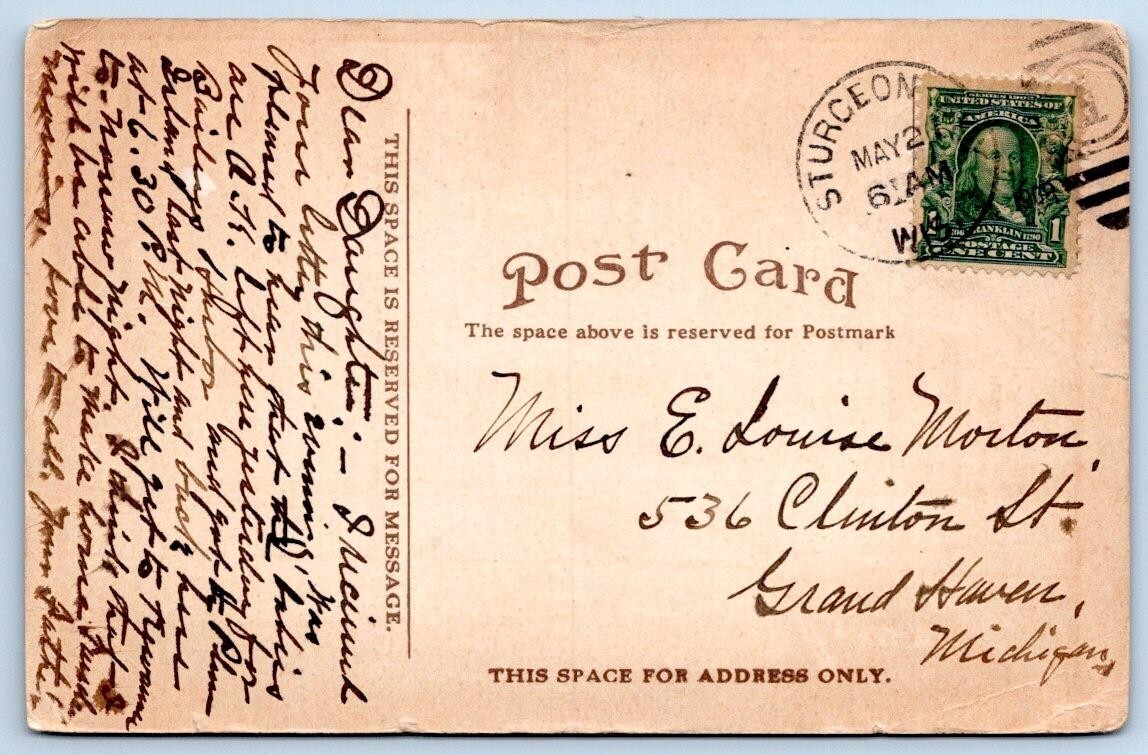 Dear Daughter: — I received
Your letter this evening. Was
pleased to hear that all babies
are A.K. Left here yesterday for
Baileys Harbor and got to
Island last night and back here
at 6:30 P.M. Will get to
to-Morrow night. I think that I
will be able to make home
Love to all. Your Father
THIS SPACE IS RESERVED FOR MESSAGE.
STURGEON
MAY 2
6 AM
WIS
SERIES 1902
UNITED STATES OF
AMERICA
FRANKLIN 1790
POSTAGE
1 ONE CENT 1
Post Card
The space above is reserved for Postmark
Miss E. Louise Morton,
536 Clinton St.
Grand Haven,
Michigan,
THIS SPACE FOR ADDRESS ONLY.